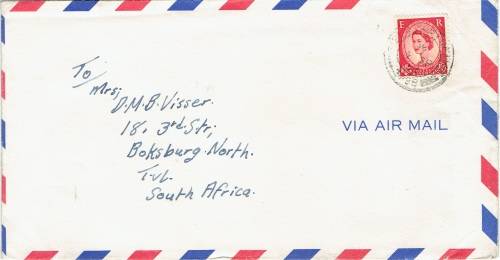 E R
To/
Mrs;
D.M.B. Visser.
18. 3rd. Str;
Boksburg. North.
Tvl.
South Africa.
VIA AIR MAIL